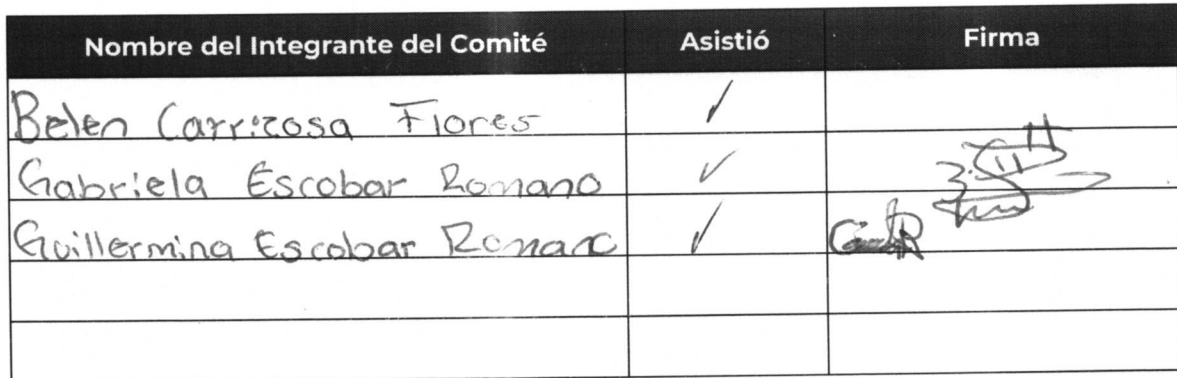 Nombre del Integrante del Comité Asistió Firma
Belen Carrizosa Flores ✓
Gabriela Escobar Romano ✓
Guillermina Escobar Romano ✓